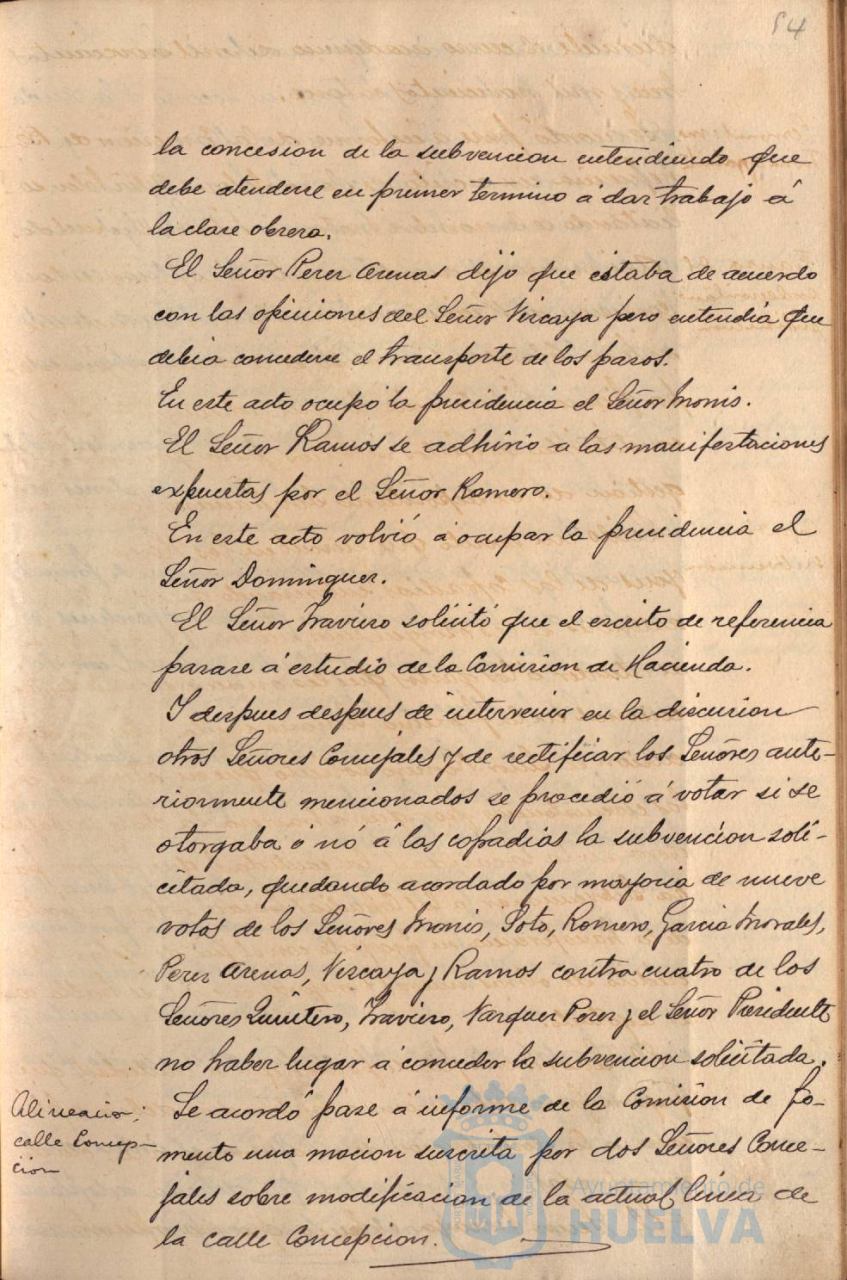 54
la concesion de la subvencion entendiendo que
debe atenderse en primer termino á dar trabajo á
la clase obrera.
El Señor Perez Arenas dijo que estaba de acuerdo
con las opiniones del Señor Vizcaya pero entendia que
debia concederse el transporte de los pasos.
En este acto ocupó la presidencia el Señor Monis.
El Señor Ramos se adhirio a las manifestaciones
expuestas por el Señor Romero.
En este acto volvió á ocupar la presidencia el
Señor Dominguez.
El Señor Travieso solicitó que el escrito de referencia
pasase á estudio de la Comision de Hacienda.
Y despues despues de intervenir en la discusion
otros Señores Concejales y de rectificar los Señores ante-
riormente mencionados se procedió á votar si se
otorgaba ó nó á las cofradias la subvención soli-
citada, quedando acordado por mayoria de nueve
votos de los Señores Monis, Soto, Romero, Garcia Morales,
Perez Arenas, Vizcaya y Ramos contra cuatro de los
Señores Quintero, Travieso, Vazquez Perez y el Señor Presidente
no haber lugar á conceder la subvencion solicitada.
Alineacion:
calle Concep-
cion
Se acordó pase á informe de la Comision de Fo-
mento una mocion suscrita por dos Señores Conce-
jales sobre modificacion de la actual linea de
la calle Concepcion.
Ayuntamiento de
HUELVA